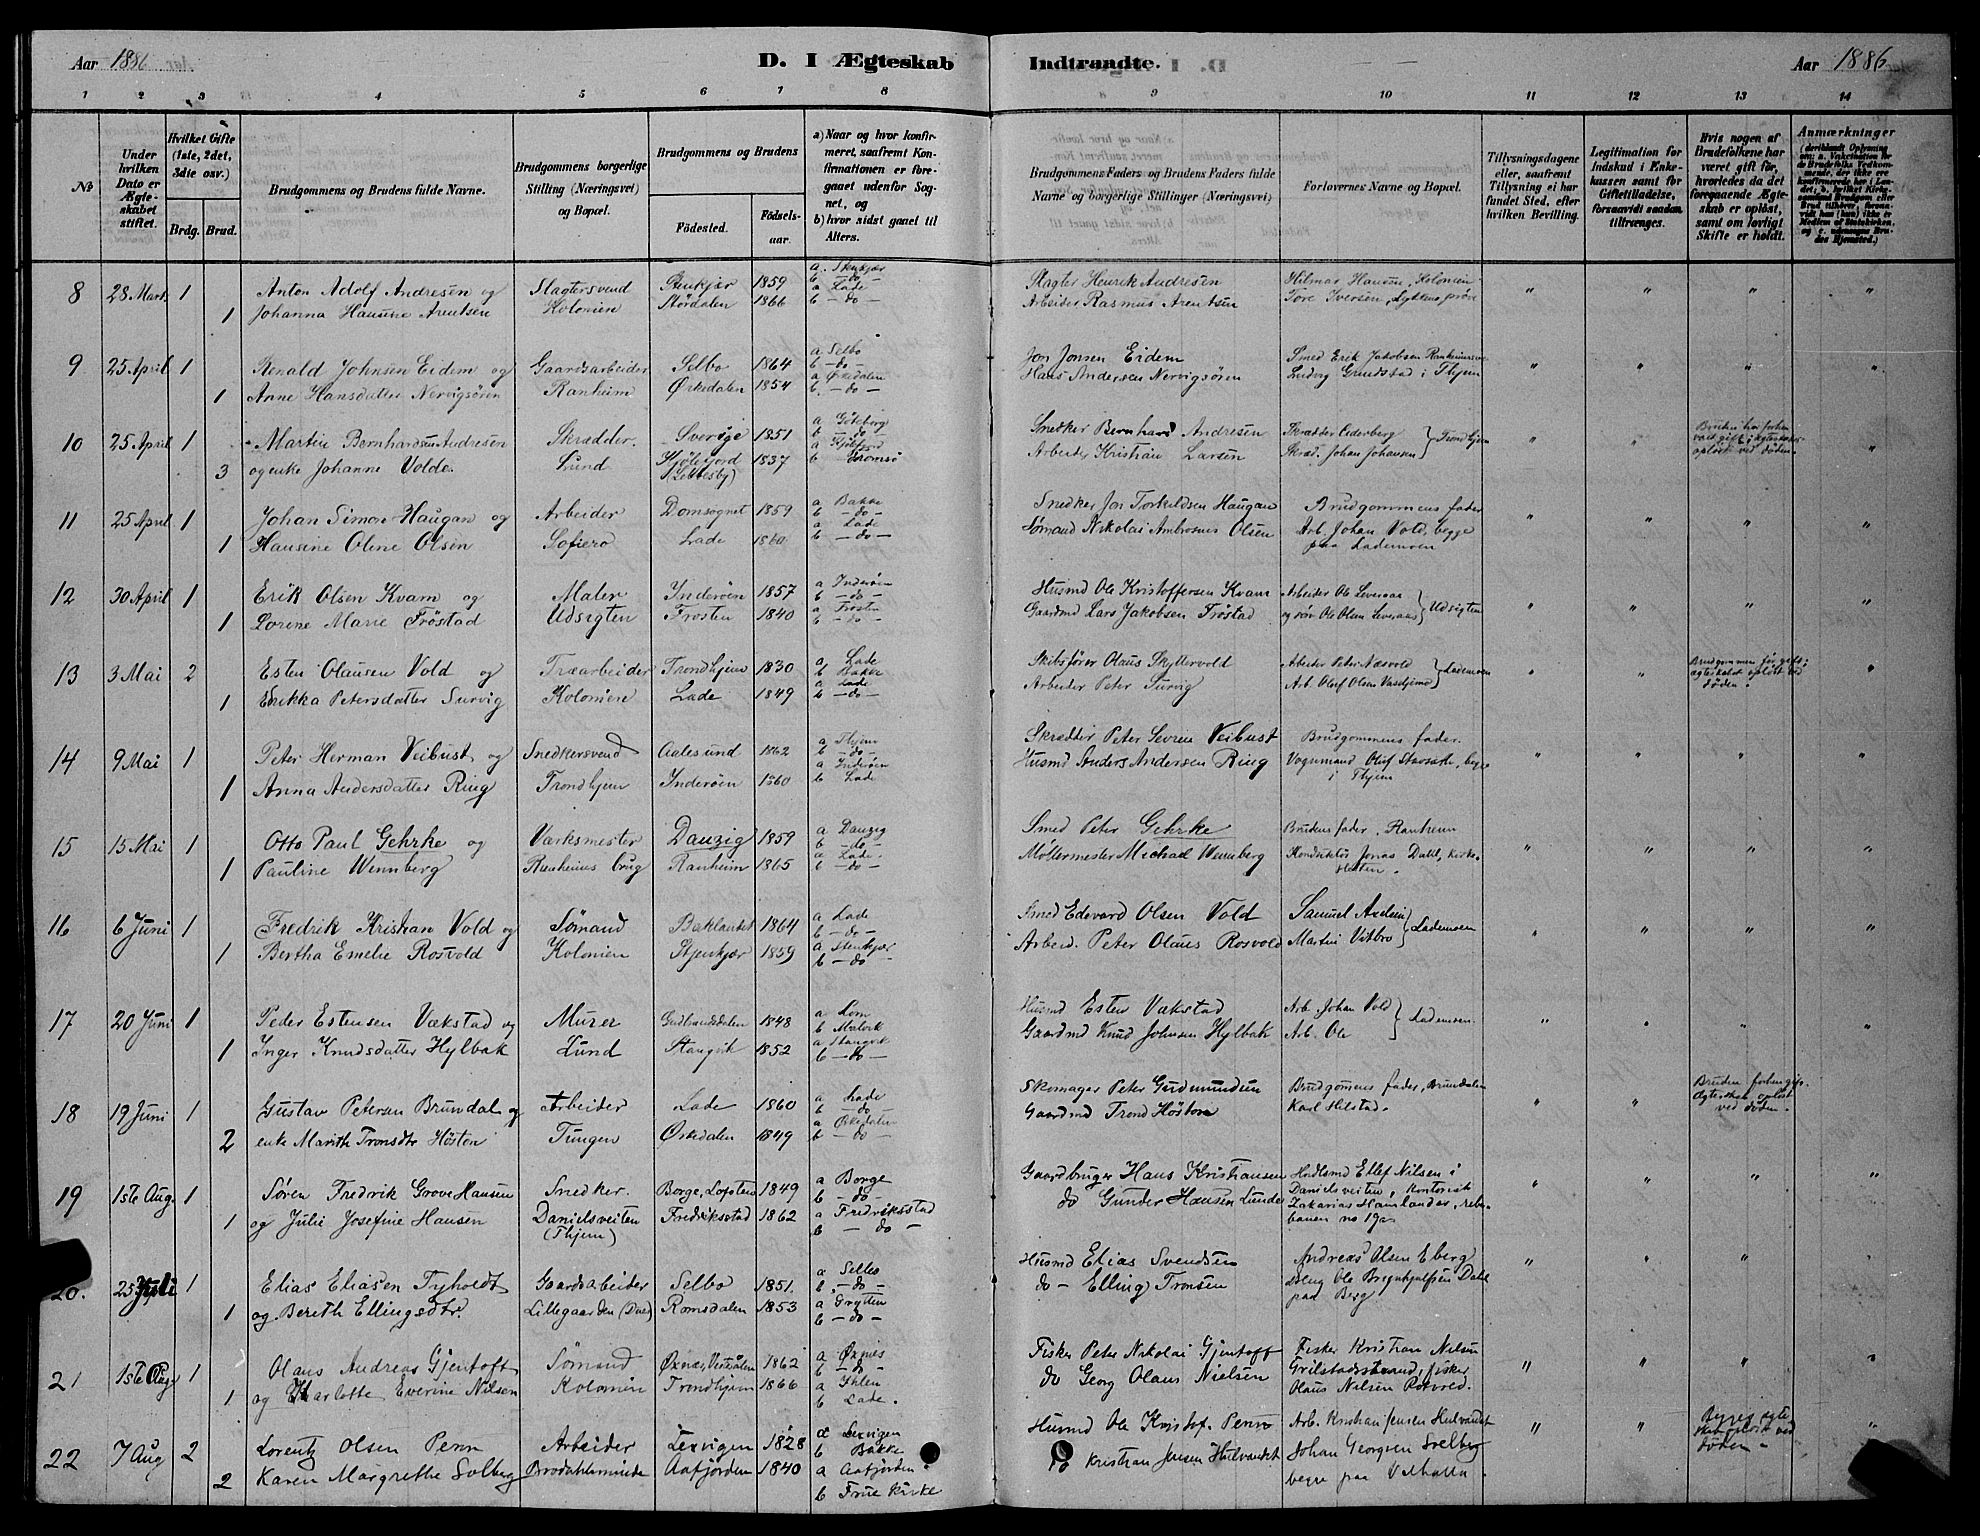 Aar 1886
D. I Ægteskab Indtraadte.
Aar 1886
1 2 3 4 5 6 7 8 9 10 11 12 13 14
No
Under hvilken Dato er Ægteskabet stiftet.
Hvilket Gifte (1ste, 2det, 3die osv.)
Brdg. Brud.
Brudgommens og Brudens fulde Navne.
Brudgommens borgerlige Stilling (Næringsvei) og Bopæl.
Brudgommens og Brudens
Fødested. Fødselsaar.
a) Naar og hvor konfirmeret, saafremt Konfirmationen er foregaaet udenfor Sognet, og
b) hvor sidst gaaet til Alters.
Brudgommens Faders og Brudens Faders fulde Navne og borgerlige Stillinger (Næringsvei)
Forlovernes Navne og Bopæl.
Tillysningsdagene eller, saafremt Tillysning ei har fundet Sted, efter hvilken Bevilling.
Legitimation for Indskud i Enkekassen samt for Giftetilladelse, forsaavidt saadan tiltrænges.
Hvis nogen af Brudefolkene har været gift, hvorledes da det foregaaende Ægteskab er opløst, samt om lovligt Skifte er holdt.
Anmærkninger
8 28 Mart 1 Anton Adolf Andresen og Slagtersvend Stenkjær 1859 a. Stenkjær b - do - Slagter Henrik Andresen Hilmar Hansen, Kolonien " " " "
1 Johanna Hansine Arentsen Kolonien Stördalen 1866 a Lade b - do - Arbeider Rasmus Arentsen Tore Iversen,
9 25 April 1 Ronald Johnsen Eidem og Gaardsarbeider Selbo 1864 a Selbo b - do - Jon Jonsen Eidem Smed Erik Jakobsen " " " "
1 Anne Hansdatter Nervigsören Ranheim Ørkedalen 1854 a Ørkedalen b. - do - Hans Andersen Nervigsören Ludvig Grundstad i Thjem
10 25 April 1 Martin Bernhardsen Andresen Skrædder. Sverige 1851 a Göteborg b - do Snedker Bernhard Andresen Skrædder Cederberg Trondhjem " "
3 og enke Johanne Volde. Lund Kjölefjord (Lebbesby) 1837 b Tromsö Arbeider Kristian Larsen Skræd. Johan Johansen
Bruden har forhen opløst ved döden. "
11 25 April 1 Johan Simon Haugan og Arbeider Domsognet 1859 a Bakke b - do - Snedker Jon Torkildsen Haugan Brudgommens fader " " " "
1 Hansine Oline Olsen Sofiero Lade 1860 a Lade b - do - Sömand Nikolai Ambrosius Olsen Arb. Johan Vold, begge paa Lademoen
12 30 April 1 Erik Olsen Kvam og Maler Inderöen 1857 a Inderöen b - do - Husmd Ole Kristoffersen Kvam Arbeider Ole Leveraas Udsigten " " " "
1 Lorene Marie Fröstad Udsigten Frosten 1840 a Frosten b - do - Gaardmd Lars Jakobsen Fröstad og sön Ole Olsen Leveraas
13 3 Mai 2 Esten Olausen Vold og Træarbeider Trondhjem 1830 a Lade b Bakke Skibsförer Olaus Skyttervold Arbeider Peter Næsvold Lademoen " " Brudgommen för gift; ægteskabet oplöst ved döden. "
1 Erikka Petersdatter Survig Kolonien Lade 1849 a Lade b - do - Arbeider Peter Survig Arb. Oluf Olsen
14 9 Mai 1 Peter Herman Veibust og Snedkersvend Aalesund 1862 a Thjem b - do - Skrædder Peter Severen Veibust Brudgommens fader. " " " "
1 Anna Andersdatter Ring Trondhjem Inderöen 1860 a Inderöen b Lade Husmd Anders Andersen Ring Vognmand Oluf Stavseth, begge i Thjem
15 15 Mai 1 Otto Paul Gehrke og Værksmester Danzig 1859 a Danzig b - do - Smed Peter Gehrke Brudens fader, Ranheim " " " "
1 Pauline Wennberg Ranheims brug Ranheim 1865 a Lade b - do - Möllermester Michael Wennberg Konduktör Jonas Dahl,
16 6 Juni 1 Fredrik Kristian Vold og Sömand Baklandet 1864 a Lade b - do - Smed Edevard Olsen Vold Samuel Lademoen " " " "
1 Bertha Emelie Rosvold Kolonien Stjenkjær 1859 a Stenkjær b - do Arbeid. Peter Olaus Rosvold Martin Vikbro
17 20 Juni 1 Peder Estensen Vækstad og Murer Gudbrandsdalen 1848 a Lom b Malvik Husmd Esten Vækstad Arb. Johan Vold Lademoen " " " "
1 Inger Knudsdatter Hylbak Lund Stangvik 1852 a Stangvik b - do - Gaardmd Knud Johnsen Hylbak Arb. Ole
18 19 Juni 1 Gustav Petersen Brundal og Arbeider Lade 1860 a Lade b - do Skomager Peter Gudmundsen Brudgomens fader, Brundalen " " Bruden forhen gift. Ægteskab oplöst ved döden.
2 enke Marith Tronsdtr Hösten Tungen Ørkedalen 1849 a Ørkedalen b - do - Gaardmd Trond Hösten Karl Hilstad.
19 1ste Aug 1 Sören Fredrik Grove Hansen Snedker. Borge, Lofoten 1849 a Borge b - do - Gaardbruger Hans Kristiansen Handlsmd Ellef Nilsen i " " " "
1 og Julie Josefine Hansen Danielsveiten (Thjem) Fredriksstad 1862 a Fredriksstad b - do - do Gunder Hansen Lunde Danielsveiten, Kontorist Zakarias
20. 25 Juli 1 Elias Eliasen Tyholdt Gaardsarbeider Selbo 1851. a Selbo b - do - Husmd Elias Svendsen Andreas Olsen Eberg " " " "
1 og Bereth Ellingsdtr. Lillegaarden Romsdalen 1853 a Grytten b - do - do - Elling Tronsen Ole Brynhjulfsen Dahl paa Berg
21 1ste Aug 1 Olaus Andreas Gjentoft Sömand Øxnæs, Vestraalen 1862 a Øxnes b - do - Fisker Peter Nikolai Gjentoff Fisker Kristian Nilsen " " " "
1 og Charlotte Everine Nilsen Kolonien Trondhjem 1866 a Ihlen b Lade. do Georg Olaus Nielsen Grilstadstrand, fisker Olaus Nilsen Rotvold.
22 7 Aug 2 Lorentz Olsen Penn Arbeider Lexvigen 1828 a Lexvigen b Bakke Husmd Ole Kristof. Penn Arb. Kristian Jensen Hulvandet " " Begges ægteskab oplöst ved döden. "
2 Karen Margrethe Solberg Brodahlsminde Aafjorden 1840 a Aafjorden. b Frue Kirke do Kristian Jensen Hulvandet Johan Georgsen Solberg begge paa Valhalla.